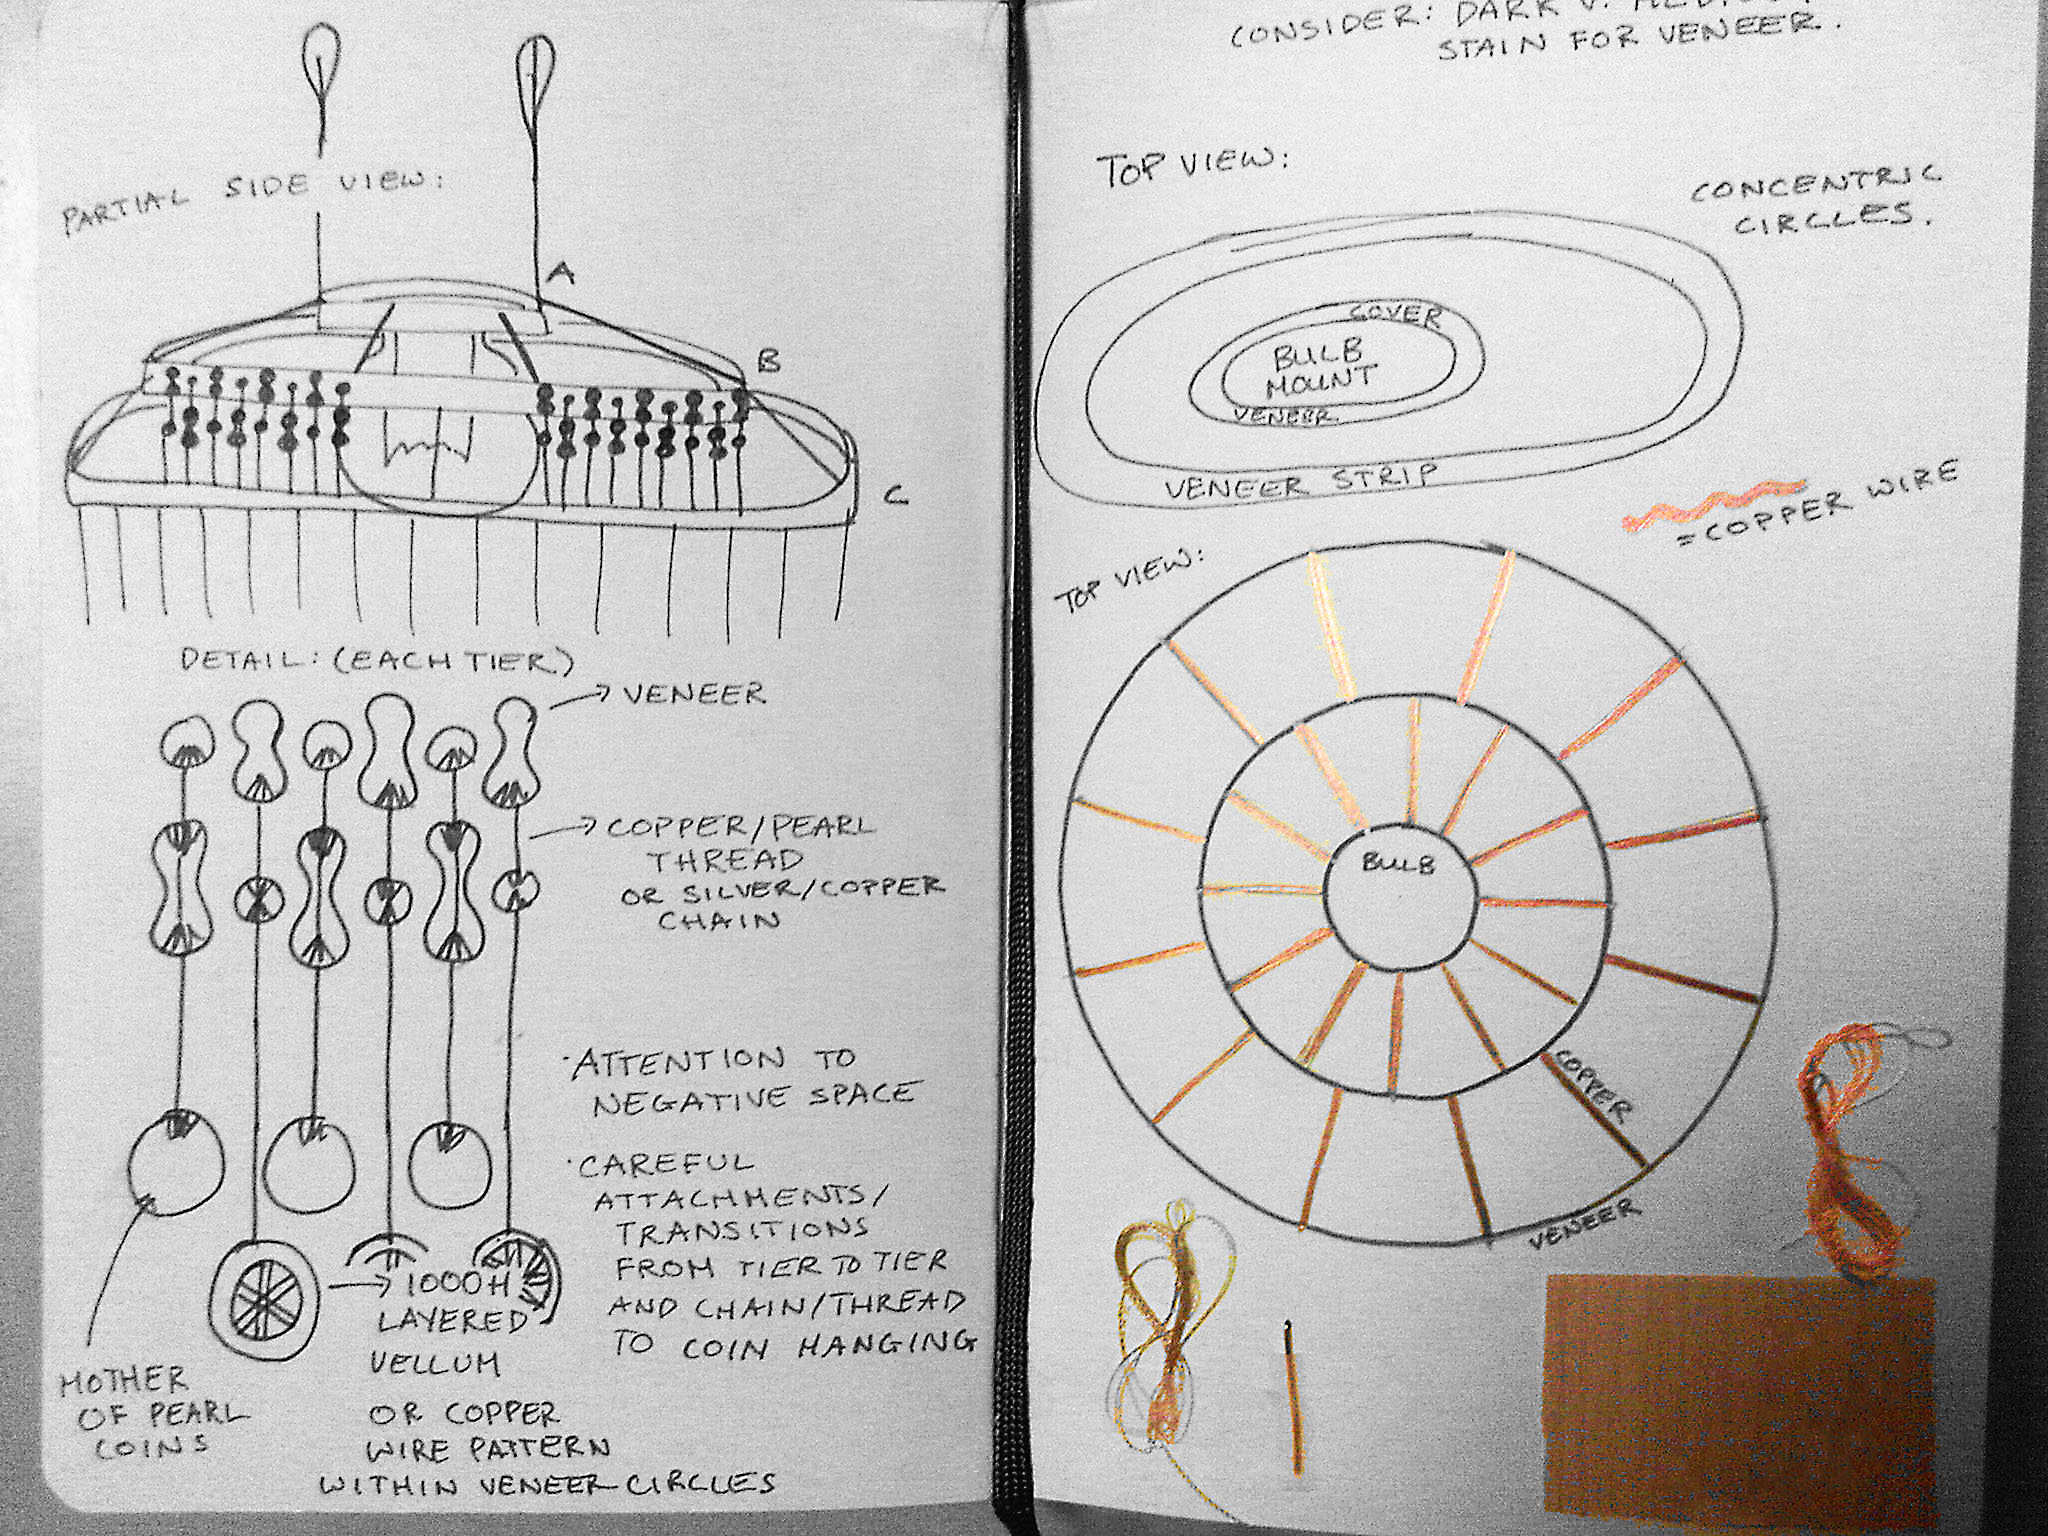 PARTIAL SIDE VIEW:
A
B
C
DETAIL: (EACH TIER)
→ VENEER
→ COPPER/PEARL
THREAD
OR SILVER/COPPER
CHAIN
·ATTENTION TO
NEGATIVE SPACE
·CAREFUL
ATTACHMENTS/
TRANSITIONS
FROM TIER TO TIER
AND CHAIN/THREAD
TO COIN HANGING
MOTHER
OF PEARL
COINS
→ 1000H
LAYERED
VELLUM
OR COPPER
WIRE PATTERN
WITHIN VENEER CIRCLES
CONSIDER: DARK V.
STAIN FOR VENEER.
TOP VIEW:
CONCENTRIC
CIRCLES.
COVER
BULB
MOUNT
VENEER
VENEER STRIP
= COPPER WIRE
TOP VIEW:
BULB
COPPER
VENEER